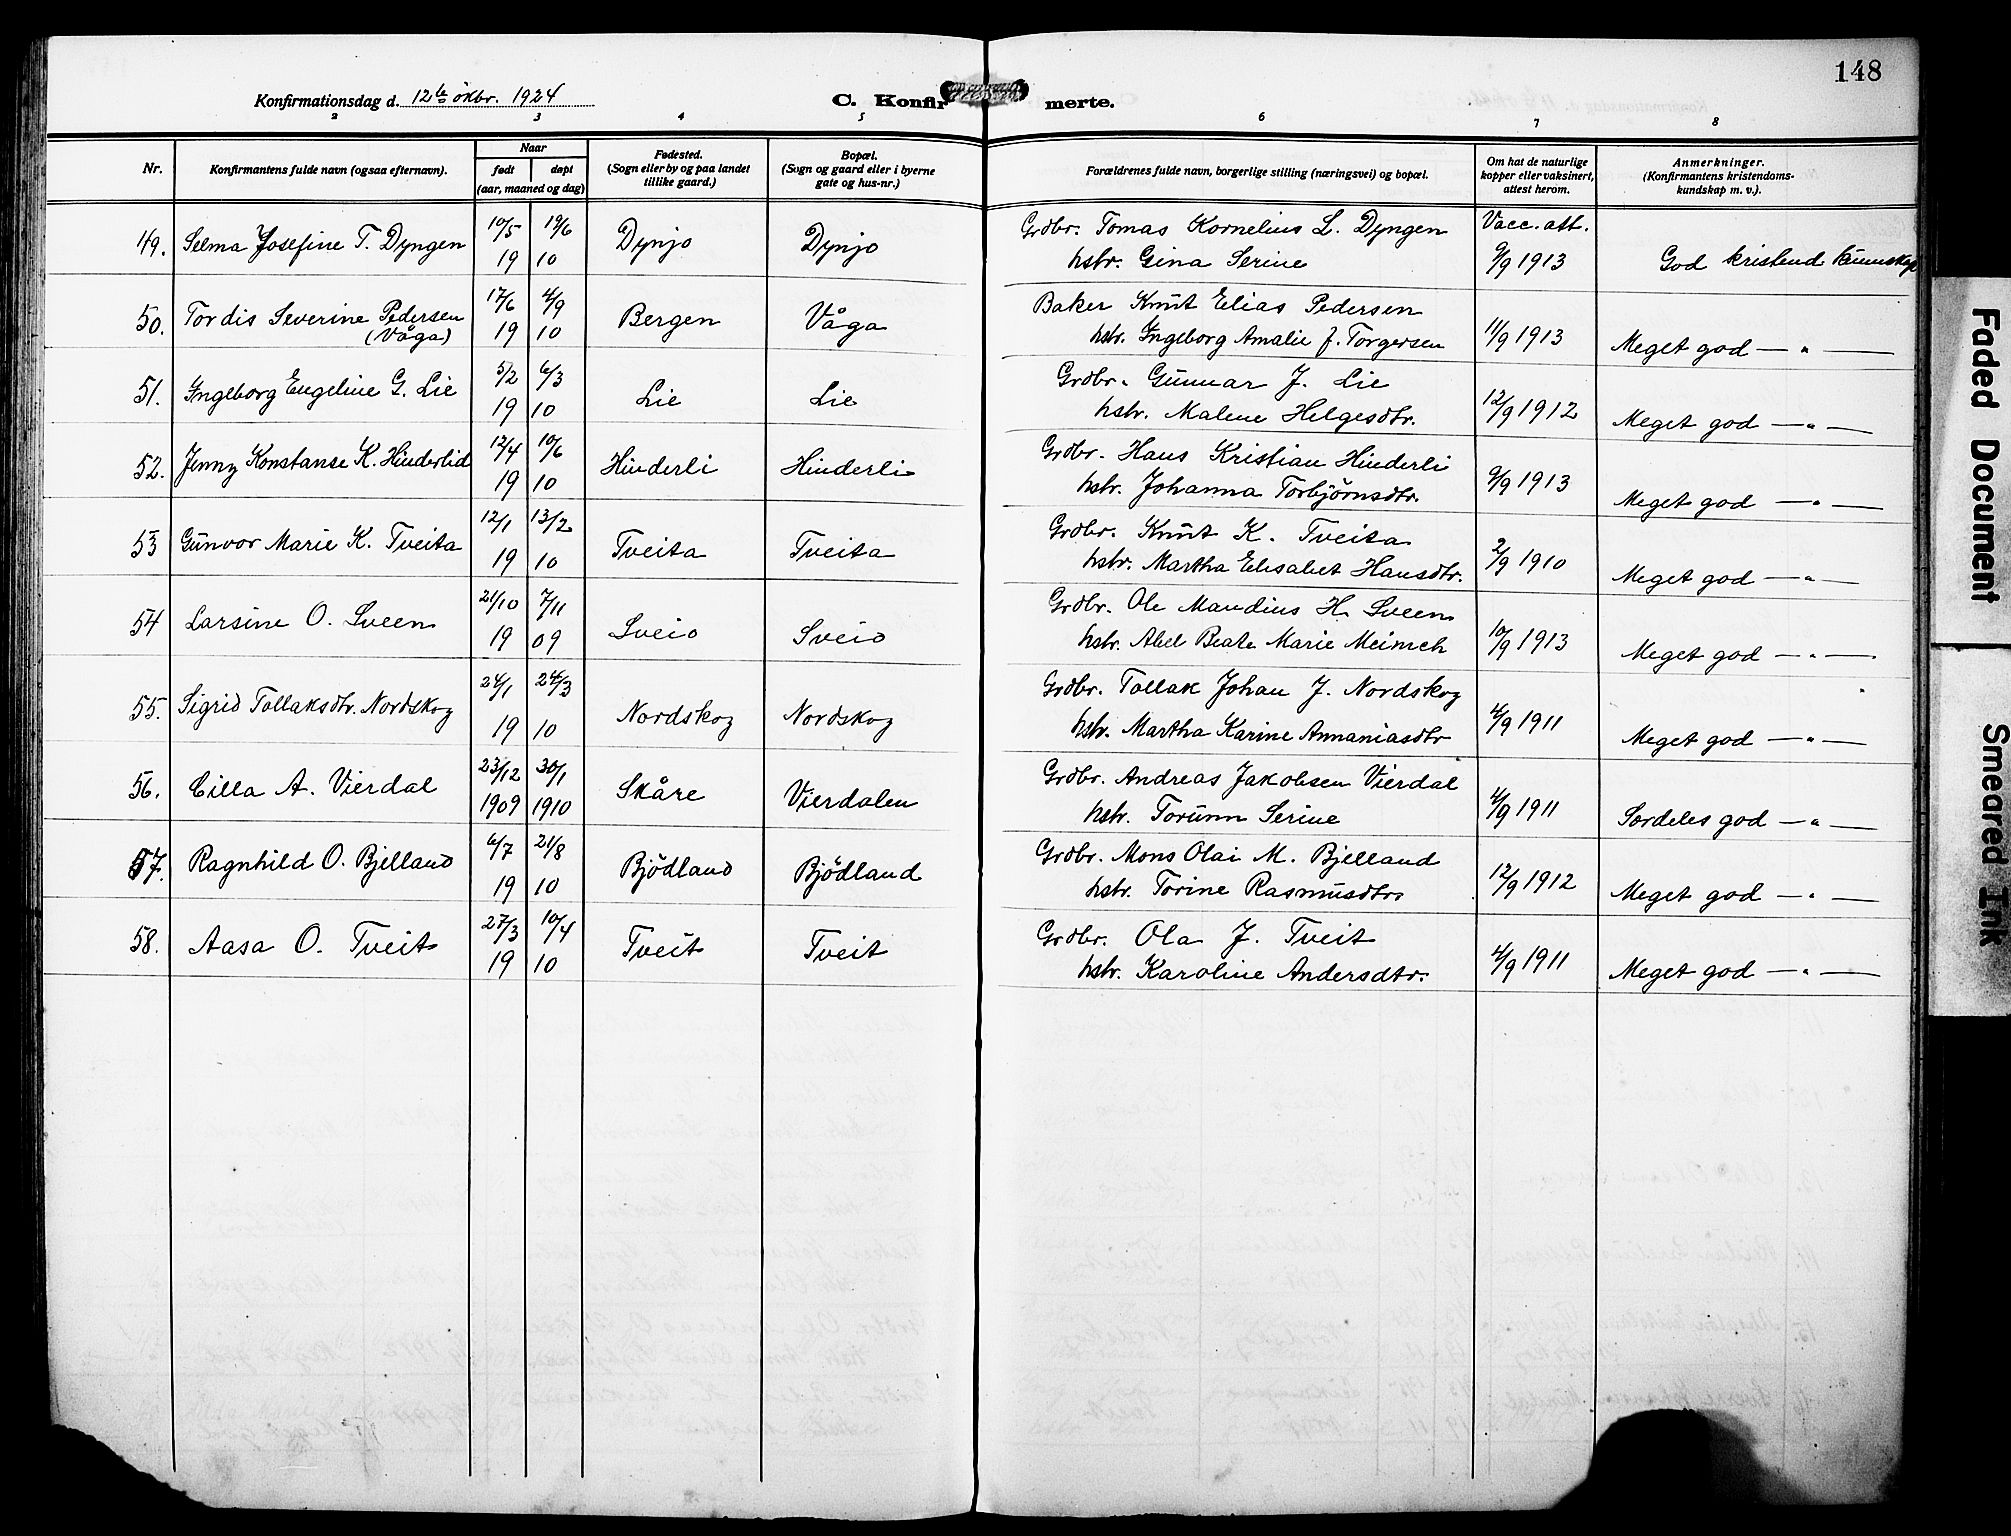 148
Konfirmationsdag d. 12te oktbr. 1924
C. Konfirmerte.
2 3 4 5 6 7 8
Nr.
Konfirmantens fulde navn (ogsaa efternavn).
Naar
født døpt
(aar, maaned og dag)
Fødested.
(Sogn eller by og paa landet
tillike gaard.)
Bopæl.
(Sogn og gaard eller i byerne
gate og hus-nr.)
Forældrenes fulde navn, borgerlige stilling (næringsvei) og bopæl.
Om hat de naturlige
kopper eller vaksinert,
attest herom.
Anmerkninger.
(Konfirmantens kristendoms-
kundskap m. v.).
49. Selma Josefine T. Dyngen 10/5 19 19/6 10 Dynjo Dynjo Grdbr. Tomas Kornelius L. Dyngen Vacc. att.
hstr. Gina Serine 9/9 1913 God kristend kunnskap
50. Tordis Severine Pedersen 17/6 4/9 Bergen Våga Baker Knut Elias Pedersen
(Våga) 19 10 hstr. Ingeborg Amalie f. Torgersen 11/9 1913 Meget god — " —
51. Ingeborg Engeline G. Lie 5/2 6/3 Lie Lie Grdbr. Gunnar J. Lie
19 10 hstr. Malene Helgesdtr. 12/9 1912 Meget god — " —
52. Jenny Konstanse K. Hinderlid 12/4 10/6 Hinderli Hinderli Grdbr. Hans Kristian Hinderli
19 10 hstr. Johanna Torbjørnsdtr. 9/9 1913 Meget god — " —
53 Gunvor Marie K. Tveita 12/1 13/2 Tveita Tveita Grdbr. Knut K. Tveita
19 10 hstr. Martha Elisabet Hansdtr. 2/9 1910 Meget god — " —
54 Larsine O. Sveen 21/10 7/11 Sveio Sveio Grdbr. Ole Mandius H. Sveen
19 09 hstr. Abel Beate Marie Meinich 10/9 1913 Meget god — " —
55. Sigrid Tollaksdtr. Nordskog 24/1 24/3 Nordskog Nordskog Grdbr. Tollak Johan J. Nordskog
19 10 hstr. Martha Karine Annaniasdtr 4/9 1911 Meget god — " —
56. Cilla A. Vierdal 23/12 30/1 Skåre Vierdalen Grdbr. Andreas Jakobsen Vierdal
1909 1910 hstr. Torunn Serine 4/9 1911 Særdeles god — " —
57. Ragnhild O. Bjelland 6/7 21/8 Bjödland Bjödland Grdbr. Mons Olai M. Bjelland
19 10 hstr. Torine Rasmusdtr. 12/9 1912 Meget god — " —
58. Aasa O. Tveit 27/3 10/4 Tveit Tveit Grdbr. Ola J. Tveit
19 10 hstr. Karoline Andersdtr. 4/9 1911 Meget god — " —
Faded Document
Smeared Ink